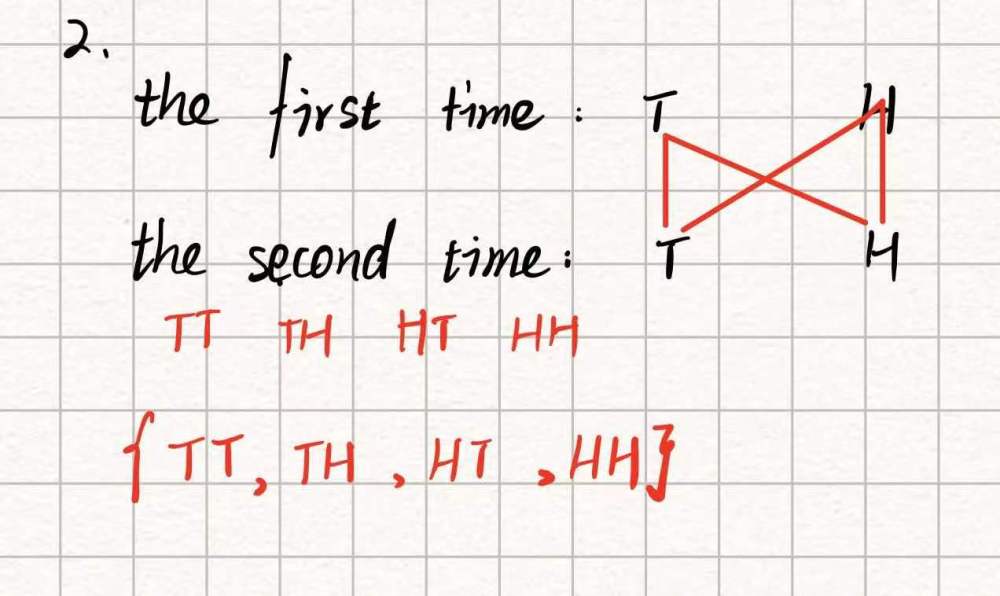 2.
the first time: T H
the second time: T H
TT TH HT HH
{TT, TH, HT, HH}